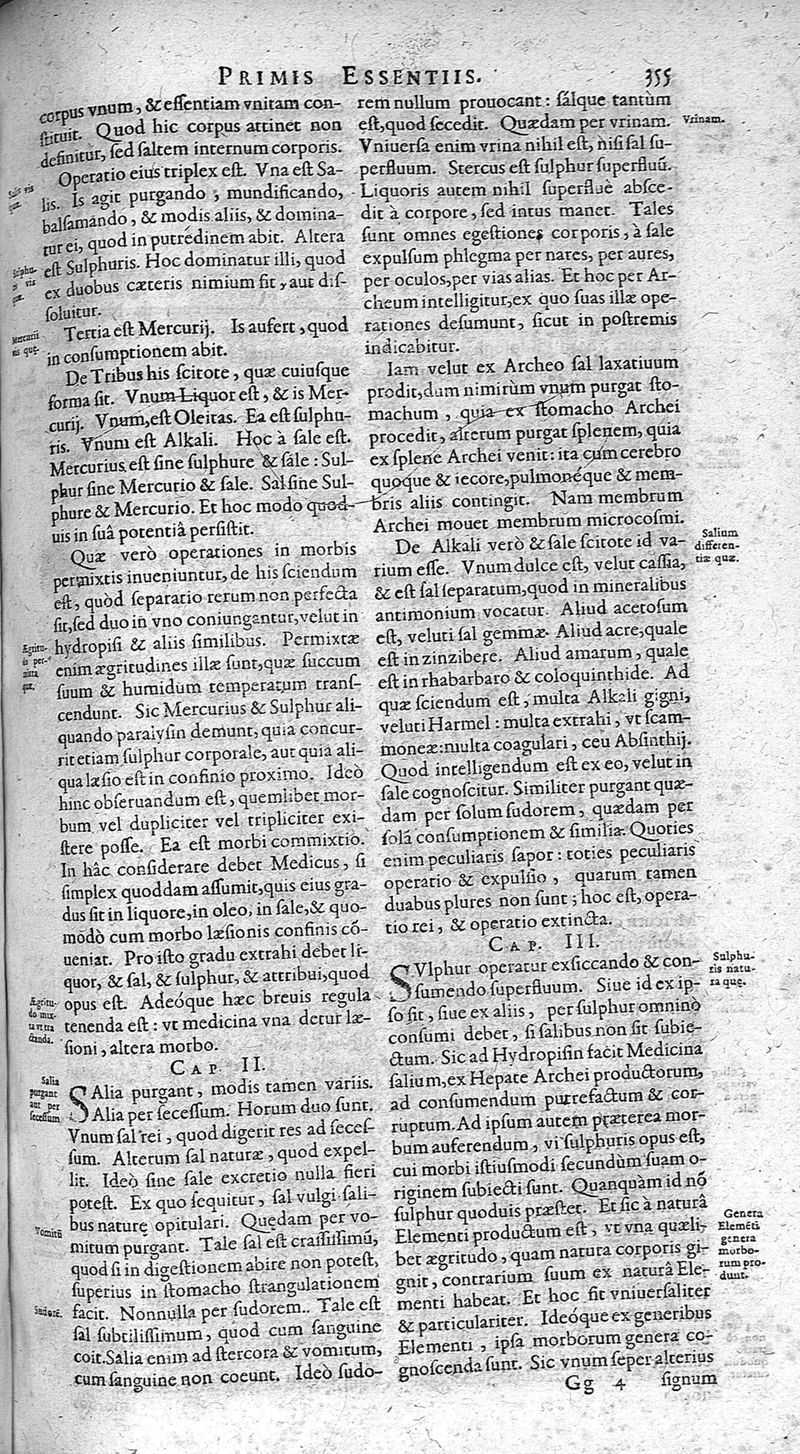 PRIMIS ESSENTIIS. 355
corpus vnum, & essentiam vnitam con-
stituit. Quod hic corpus attinet non
definitur, sed saltem internum corporis.
Operatio eius triplex est. Vna est Sa-
lis. Is agit purgando, mundificando,
balsamando, & modis aliis, & domina-
tur ei, quod in putredinem abit. Altera
est Sulphuris. Hoc dominatur illi, quod
ex duobus cæteris nimium fit, aut dis-
soluitur.
Tertia est Mercurij. Is aufert, quod
in consumptionem abit.
De Tribus his scitote, quæ cuiusque
forma sit. Vnum Liquor est, & is Mer-
curij. Vnum, est Oleitas. Ea est sulphu-
ris. Vnum est Alkali. Hoc à sale est.
Mercurius est sine sulphure & sale: Sul-
phur sine Mercurio & sale. Sal sine Sul-
phure & Mercurio. Et hoc modo quod-
uis in suâ potentiâ persistit.
Quæ verò operationes in morbis
permixtis inueniuntur, de his sciendum
est, quòd separatio rerum non perfecta
sit, sed duo in vno coniungantur, velut in
hydropisi & aliis similibus. Permixtæ
enim ægritudines illæ sunt, quæ succum
suum & humidum temperatum trans-
cendunt. Sic Mercurius & Sulphur ali-
quando paraivsin demunt, quia concur-
rit etiam sulphur corporale, aut quia ali-
qua læsio est in confinio proximo. Ideò
hinc obseruandum est, quemlibet mor-
bum vel dupliciter vel tripliciter exi-
stere posse. Ea est morbi commixtio.
In hâc considerare debet Medicus, si
simplex quoddam assumit, quis eius gra-
dus sit in liquore, in oleo, in sale, & quo-
modò cum morbo læsionis confinis cō-
ueniat. Pro isto gradu extrahi debet li-
quor, & sal, & sulphur, & attribui, quod
opus est. Adeóque hæc breuis regula
tenenda est: vt medicina vna detur læ-
sioni, altera morbo.
CAP. II.
SAlia purgant, modis tamen variis.
Alia per secessum. Horum duo sunt.
Vnum sal rei, quod digerit res ad seces-
sum. Alterum sal naturæ, quod expel-
lit. Ideò sine sale excretio nulla fieri
potest. Ex quo sequitur, sal vulgi sali-
bus naturę opitulari. Quędam per vo-
mitum purgant. Tale sal est crassissimū,
quod si in digestionem abire non potest,
superius in stomacho strangulationem
facit. Nonnulla per sudorem.. Tale est
sal subtilissimum, quod cum sanguine
coit. Salia enim ad stercora & vomitum,
cum sanguine non coeunt. Ideò sudo-
Sulphu-
Mercurii
vis quę.
Ægritu-
do per-
mixta
quę.
Ægritu-
do mix-
ta vt tra
ctanda.
Salia
purgant
aut per
secessum
Vomitū
Sudorē.
rem nullum prouocant: sálque tantùm
est, quod secedit. Quædam per vrinam.
Vniuersa enim vrina nihil est, nisi sal su-
perfluum. Stercus est sulphur superfluū.
Liquoris autem nihil superfluè absce-
dit à corpore, sed intus manet. Tales
sunt omnes egestiones corporis, à sale
expulsum phlegma per nares, per aures,
per oculos, per vias alias. Et hoc per Ar-
cheum intelligitur, ex quo suas illæ ope-
rationes desumunt, sicut in postremis
indicabitur.
Iam velut ex Archeo sal laxatiuum
prodit, dum nimirùm vnum purgat sto-
machum, quia ex stomacho Archei
procedit, alterum purgat splenem, quia
ex splene Archei venit: ita cum cerebro
quoque & iecore, pulmonéque & mem-
bris aliis contingit. Nam membrum
Archei mouet membrum microcosmi.
De Alkali verò & sale scitote id va-
rium esse. Vnum dulce est, velut cassia,
& est sal separatum, quod in mineralibus
antimonium vocatur. Aliud acetosum
est, veluti sal gemmæ. Aliud acre, quale
est in zinzibere. Aliud amarum, quale
est in rhabarbaro & coloquinthide. Ad
quæ sciendum est, multa Alkali gigni,
veluti Harmel: multa extrahi, vt scam-
moneæ: multa coagulari, ceu Absinthij.
Quod intelligendum est ex eo, velut in
sale cognoscitur. Similiter purgant quæ-
dam per solum sudorem, quædam per
solā consumptionem & similia. Quoties
enim peculiaris sapor: toties peculiaris
operatio & expulsio, quarum tamen
duabus plures non sunt; hoc est, opera-
tio rei, & operatio extincta.
CAP. III.
SVlphur operatur exsiccando & con-
sumendo superfluum. Siue id ex ip-
so sit, siue ex aliis, per sulphur omninò
consumi debet, si salibus non sit subie-
ctum. Sic ad Hydropisin facit Medicina
salium, ex Hepate Archei productorum,
ad consumendum putrefactum & cor-
ruptum. Ad ipsum autem præterea mor-
bum auferendum, vi sulphuris opus est,
cui morbi istiusmodi secundùm suam o-
riginem subiecti sunt. Quanquàm id nō
sulphur quoduis præstet. Et sic à naturâ
Elementi productum est, vt vna quæli-
bet ægritudo, quam natura corporis gi-
gnit, contrarium suum ex naturâ Ele-
menti habeat. Et hoc fit vniuersaliter
& particulariter. Ideóque ex generibus
Elementi, ipsa morborum genera co-
gnoscenda sunt. Sic vnum sēper alterius
Gg 4 signum
Vrinam.
Salium
differen-
tiæ quæ.
Sulphu-
ris natu-
ra quę.
Genera
Elemēti
genera
morbo-
rum pro-
dunt.